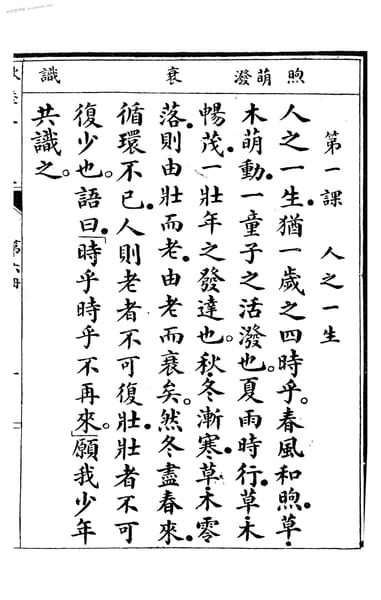 煦 萌 潑 衰 識
第一課 人之一生
人之一生。猶一歲之四時乎。春風和煦。草
木萌動。一童子之活潑也。夏雨時行。草木
暢茂。一壯年之發達也。秋冬漸寒。草木零
落。則由壯而老。由老而衰矣。然冬盡春來。
循環不已。人則老者不可復壯。壯者不可
復少也。語曰。「時乎時乎不再來。」願我少年
共識之。
第六冊 一